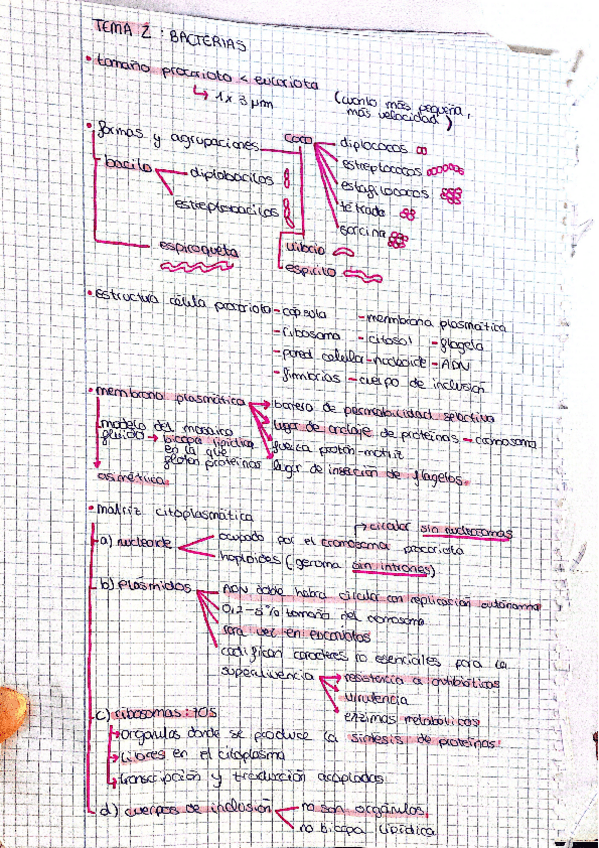 TEMA 2 : BACTERIAS
• tamaño procariota < eucariota
↳ 1 x 3 μm
(cuanto más pequeña, más velocidad)
• formas y agrupaciones
coco
diplococos
estreptococos
estafilococos
tétrada
sarcina
bacilo
diplobacilos
estreptobacilos
espiroqueta
vibrio
espirilo
• estructura célula procariota - cápsula - membrana plasmática
- ribosoma - citosol - flagelo
- pared celular - nucleoide - ADN
- fimbrias - cuerpo de inclusión
• membrana plasmática
barrera de permeabilidad selectiva
lugar de anclaje de proteínas - cromosoma
fuerza protón-motriz
lugar de inserción de flagelos.
modelo del mosaico fluido → bicapa lipídica
en la que
flotan proteínas
asimétrica.
• matriz citoplasmática
→ circular sin nucleosomas
a) nucleoide
ocupado por el cromosoma procariota
haploides (genoma sin intrones)
b) plásmidos
ADN doble hebra circular con replicación autónoma
0,2-5% tamaño del cromosoma
rara vez en eucariotas
codifican caracteres no esenciales para la
supervivencia
resistencia a antibióticos
virulencia
enzimas metabólicos
c) ribosomas: 70S
→ orgánulos donde se produce la síntesis de proteínas
→ libres en el citoplasma
→ transcripción y traducción acopladas
d) cuerpos de inclusión
no son orgánulos
no bicapa lipídica